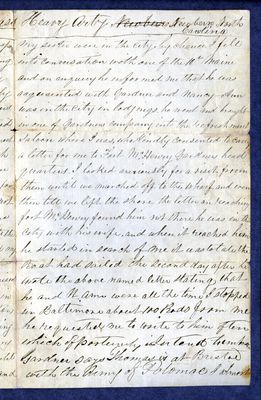 Henry Arty Newbern Newbern North
Carolina
my sister were in the city, by chance I fell
into conversation with one of the 11th Maine
and on enquiry he informed me that he was
acquainted with Gardner and Nancy Ann
was in the city in lodgings he went and brought
in one of Gardners company into the refreshment
Saloon where I was, who kindly consented to carry
a letter for me to Fort McHenry Gardners head
quarters I looked anxiously for a visit from
them until we marched off to the wharf and even
then till we left the shore the letter on reaching
fort McHenry found him not there he was in the
City with his wife, and when it reached him
he started in search of me it was to late the
Boat had sailed the second day after he
wrote the above named letter stating that
he and N Ann were all the time I stopped
in Baltimore about 100 Rods from me
he requested me to write to him often
which of
Gardner says Thomas is at Bristoe
with the Army of Potomac